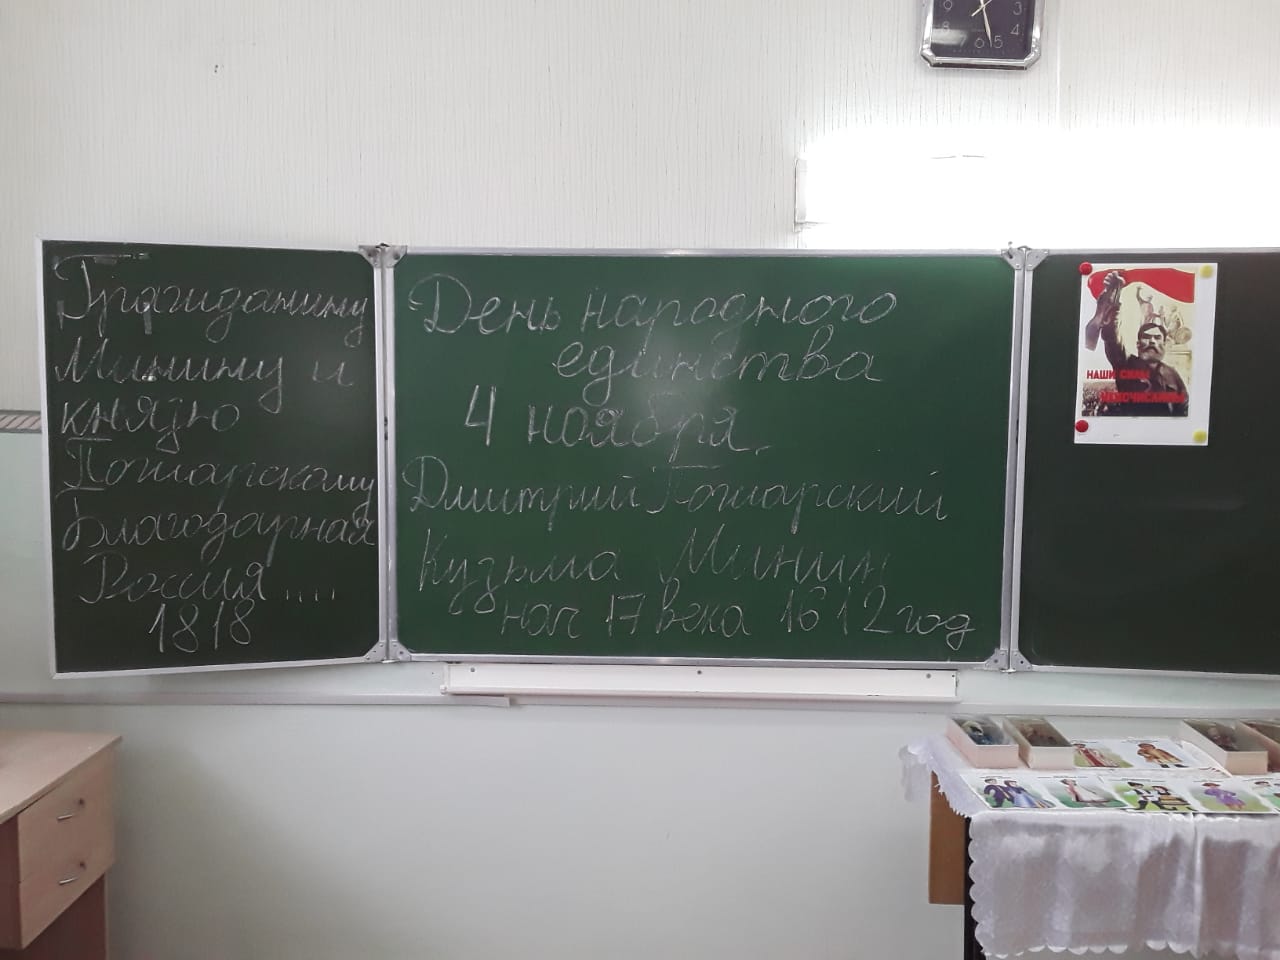 Гражданину
Минину и
князю
Пожарскому
Благодарная
Россия ....
1818
День народного
единства
4 ноября
Дмитрий Пожарский
Кузьма Минин
нач 17 века 1612 год
НАШИ СИЛЫ
НЕИСЧИСЛИМЫ
9
3
8
4
7 6 5